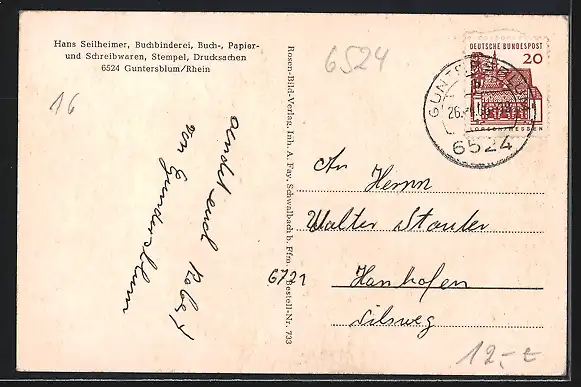 Hans Seilheimer, Buchbinderei, Buch-, Papier-
und Schreibwaren, Stempel, Drucksachen
6524 Guntersblum/Rhein
6524
16
DEUTSCHE BUNDESPOST
20
LORSCH/HESSEN
GUNTERSBLUM
26.
6524
Rosen-Bild-Verlag, Inh. A. Fay, Schwalbach b. Ffm. Bestell-Nr. 733
sendet euch Robert
von Guntersblum
An Herrn
Walter Stauder
6721
Hanhofen
12,-